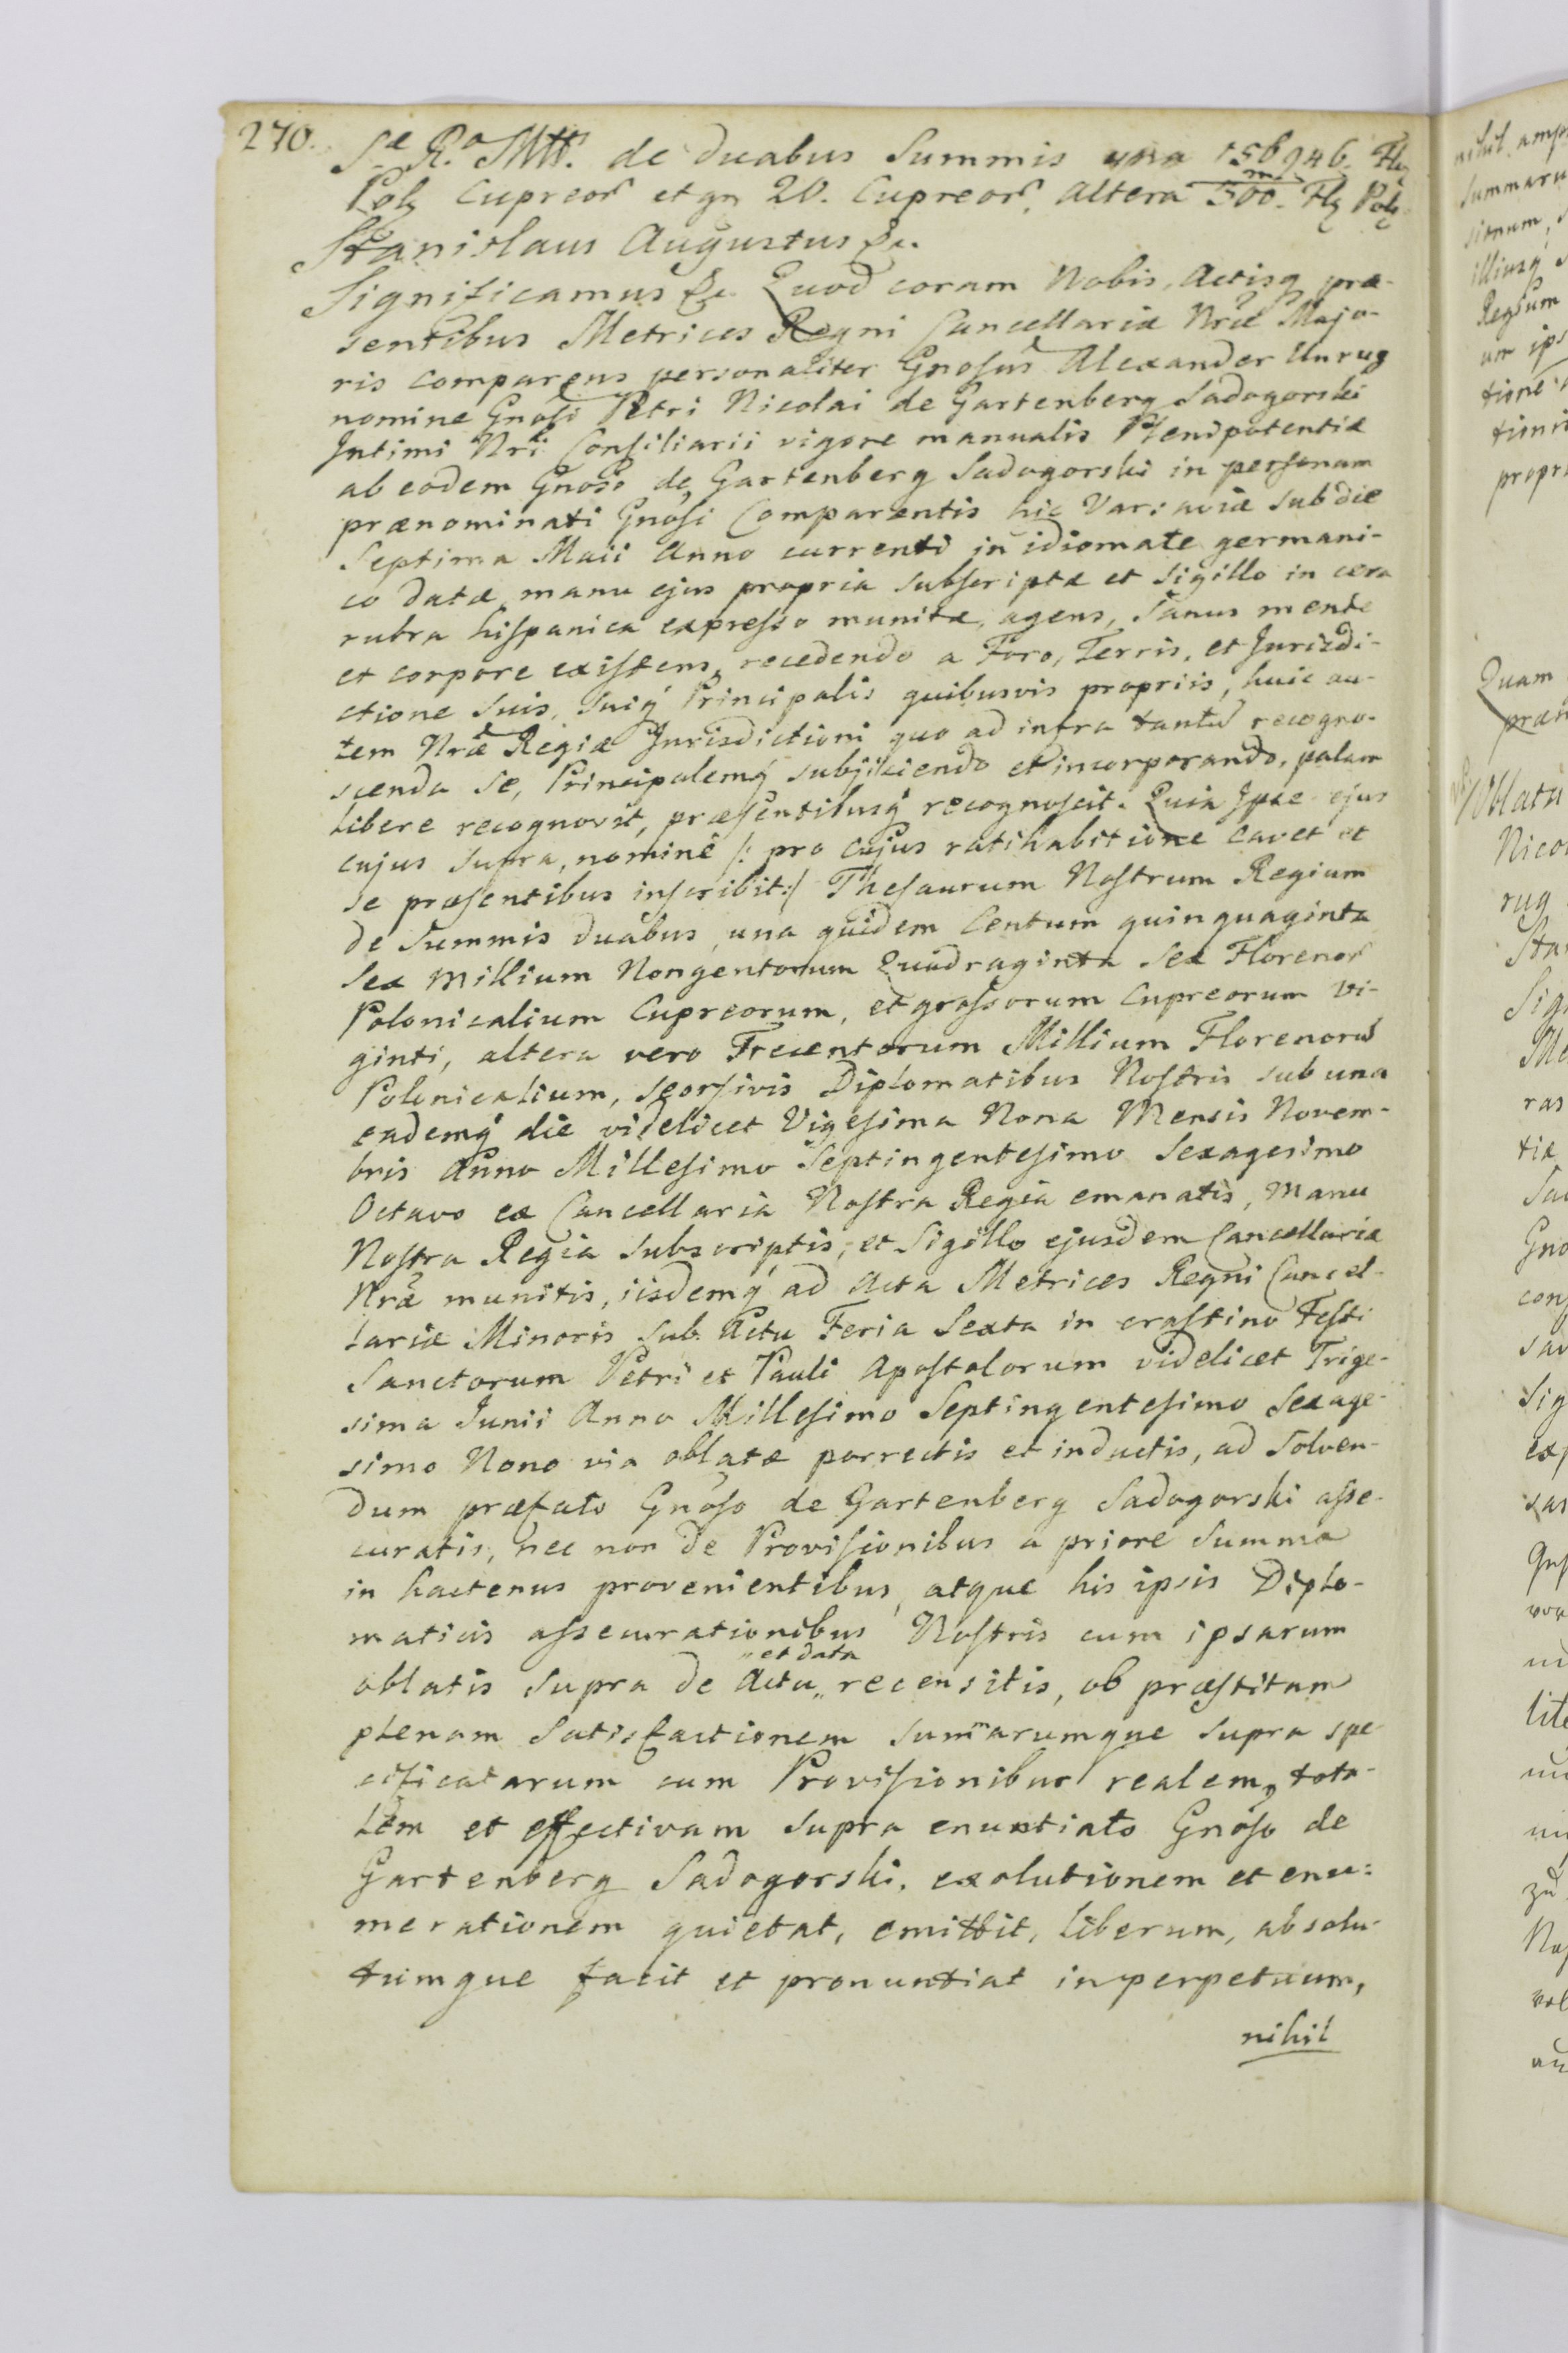 270.
Sæ Rª Mtt. de duabus Summis una 156946. Flg
Polg Cupreor et gr 20. Cupreor, altera 300.m Flg Polg
Stanislaus Augustus &c.
Significamus &c. Quod coram Nobis, Actisq præ-
sentibus Metrices Regni Cancellariæ Nræ Majo-
ris comparens personaliter Gnosus Alexander Unrug
nomine Gnosi Petri Nicolai de Gartenberg Sadogorski
Intimi Nri Consiliarii vigore manualis Plenipotentiæ
ab eodem Gnoso de Gartenberg Sadogorski in personam
prænominati Gnosi Comparentis hic Varsaviæ sub die
Septima Maii Anno currenti in idiomate germani-
co datæ, manu ejus propria subscriptæ et Sigillo in cera
rubra hispanica expresso munitæ, agens, Sanus mente
et corpore existens, recedendo a Foro, Terris, et Jurisdi-
ctione suis, suiq Principalis quibusvis propriis, huic au-
tem Nræ Regiæ Jurisdictioni quo ad infra tantū recogno-
scenda se, Principalemq subjiciendo et incorporando, palam
libere recognovit, præsentibusq recognoscit. Quia Ipse ejus
cujus supra, nomine /: pro cujus ratihabitione cavet et
se præsentibus inscribit :/ Thesaurum Nostrum Regium
de Summis duabus, una quidem Centum quinquaginta
Sex Millium Nongentorum Quadraginta Sex Florenor
Polonicalium Cupreorum, et grossorum Cupreorum Vi-
ginti, altera vero Trecentorum Millium Florenorū
Polonicalium, seorsivis Diplomatibus Nostris sub una
eademq die videlicet Vigesima Nona Mensis Novem-
bris Anno Millesimo Septingentesimo Sexagesimo
Octavo ex Cancellaria Nostra Regia emanatis, Manu
Nostra Regia subscriptis, et Sigillo ejusdem Cancellariæ
Nræ munitis, iisdemq ad Acta Metrices Regni Cancel-
lariæ Minoris sub Actu Feria Sexta in crastino Festi
Sanctorum Petri et Pauli Apostolorum videlicet Trige-
sima Junii Anno Millesimo Septingentesimo Sexage-
simo Nono via oblatæ porrectis et inductis, ad solven-
dum præfato Gnoso de Gartenberg Sadogorski asse-
curatis, nec non de Provisionibus a priore Summa
in hactenus provenientibus, atque his ipsis Diplo-
maticis assecurationibus Nostris cum ipsarum
oblatis supra de Actu " et data recensitis, ob præstitam
plenam Satisfactionem summarumque supra spe-
cificatarum cum Provisionibus realem, tota-
lem et effectivam supra enuntiato Gnoso de
Gartenberg Sadogorski, exolutionem et enu-
merationem quietat, emittit, liberum, absolu-
tumque facit et pronuntiat in perpetuum,
nihil
nihil
Summaru
illiusq
Regium
propri
Quam
Oblatu
Nico
rug
Sta
Sig
ras
tiæ
Gno
con
Sig
lite
zu